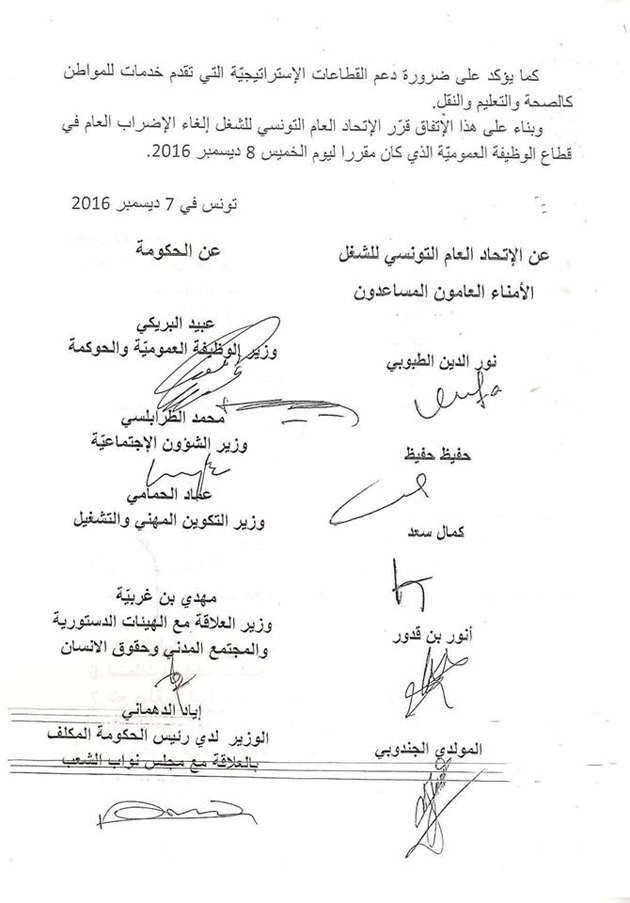 كما يؤكد على ضرورة دعم القطاعات الإستراتيجيّة التي تقدم خدمات للمواطن
كالصحة والتعليم والنقل.
وبناء على هذا الإتفاق قرّر الإتحاد العام التونسي للشغل إلغاء الإضراب العام في
قطاع الوظيفة العموميّة الذي كان مقررا ليوم الخميس 8 ديسمبر 2016.
تونس في 7 ديسمبر 2016
عن الإتحاد العام التونسي للشغل
الأمناء العامون المساعدون
نور الدين الطبوبي
حفيظ حفيظ
كمال سعد
أنور بن قدور
المولدي الجندوبي
عن الحكومة
عبيد البريكي
وزير الوظيفة العموميّة والحوكمة
محمد الطرابلسي
وزير الشؤون الإجتماعيّة
عماد الحمامي
وزير التكوين المهني والتشغيل
مهدي بن غربيّة
وزير العلاقة مع الهيئات الدستورية
والمجتمع المدني وحقوق الانسان
إياد الدهماني
الوزير لدي رئيس الحكومة المكلف
بالعلاقة مع مجلس نواب الشعب